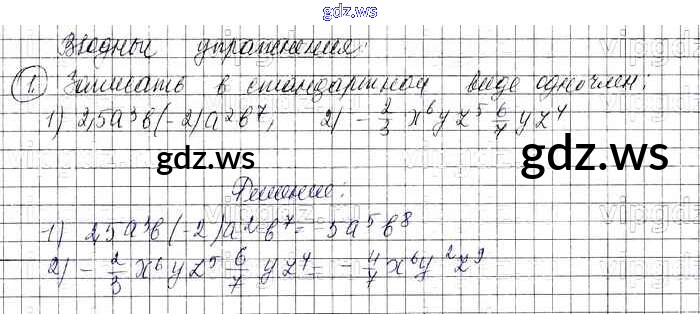 gdz.ws
Вводные упражнения:
1. Записать в стандартном виде одночлен:
1) 2,5a³b(-2)a²b⁷; 2) -2/3 x⁶yz⁵ 6/7 yz⁴
gdz.ws gdz.ws
Решение:
1) 2,5a³b(-2)a²b⁷ = -5a⁵b⁸
2) -2/3 x⁶yz⁵ 6/7 yz⁴ = -4/7 x⁶y²z⁹
gdz.ws